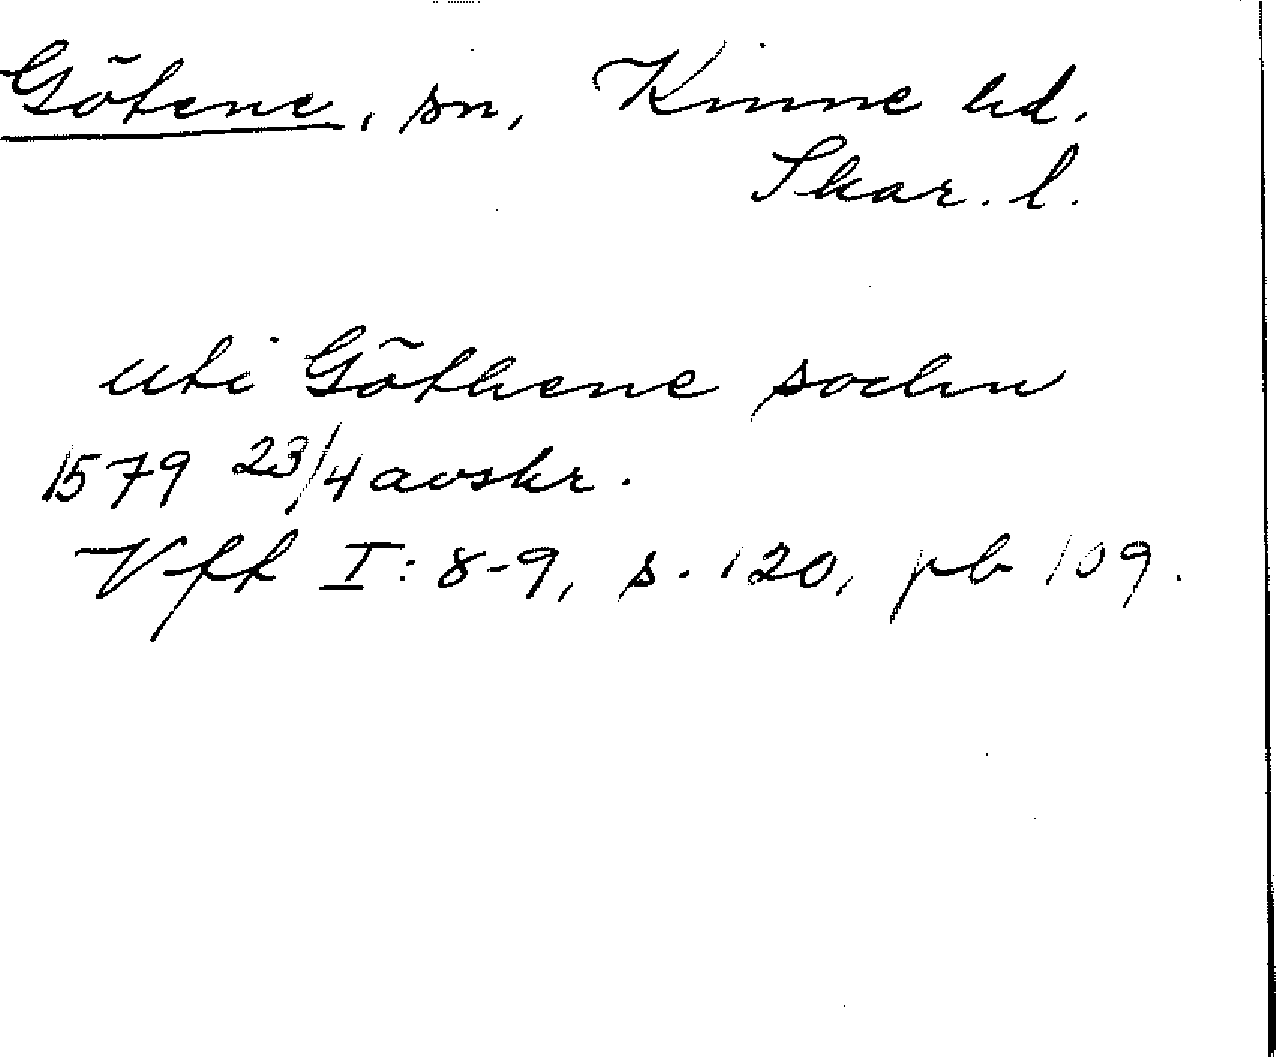 Götene, sn, Kinne hd.
Skar. l.
uti Göthene sochn
1579 23/4 avskr.
Vfft I: 8-9, s. 120, pb 109.